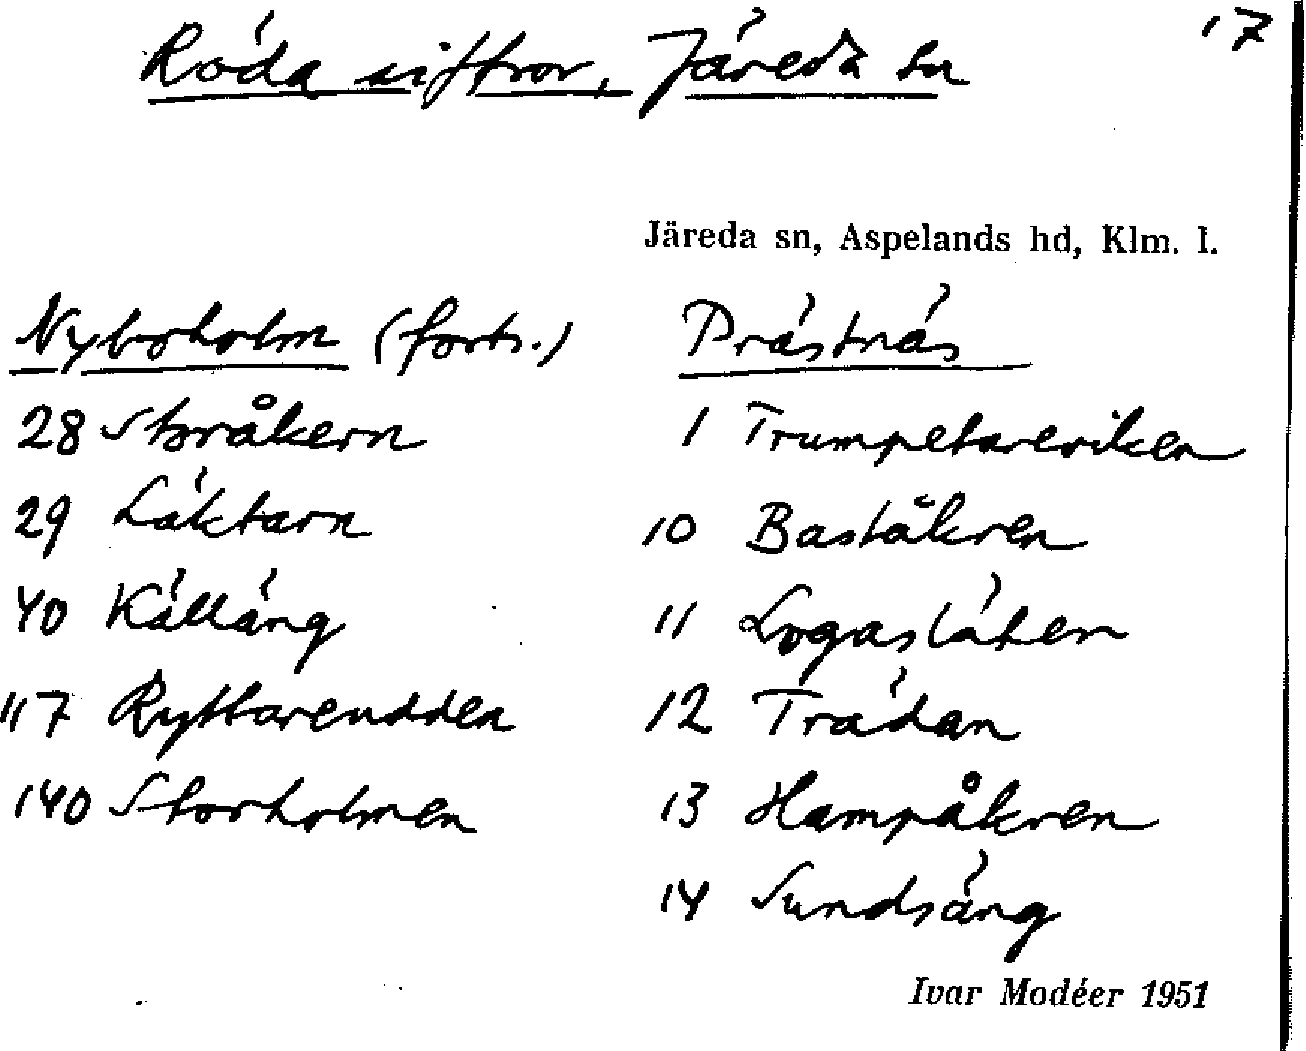 17
Röda siffror, Järeda sn
Järeda sn, Aspelands hd, Klm. l.
Nyboholm (forts.)
28 Stråkern
29 Läktarn
40 Källäng
117 Ryttareudden
140 Storholmen
Prästnäs
1 Trumpetareviken
10 Baståkren
11 Logaslåten
12 Trädan
13 Hampåkren
14 Sundsäng
Ivar Modéer 1951